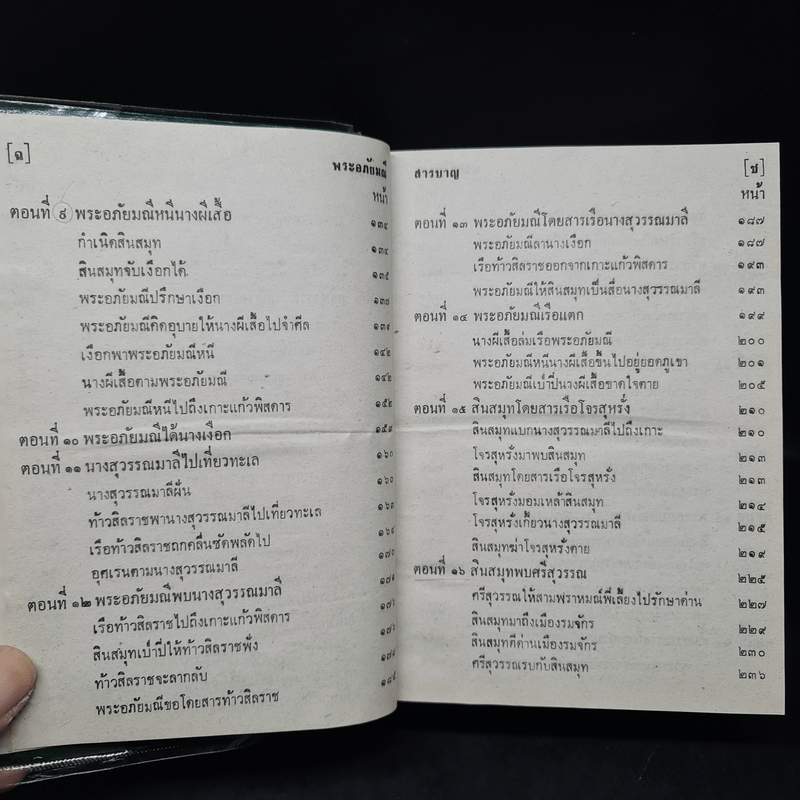 [ฉ]
พระอภัยมณี
หน้า
ตอนที่ ๙ พระอภัยมณีหนีนางผีเสื้อ ๑๓๔
กำเนิดสินสมุท ๑๓๔
สินสมุทจับเงือกได้ ๑๓๕
พระอภัยมณีปรึกษาเงือก ๑๓๗
พระอภัยมณีคิดอุบายให้นางผีเสื้อไปจำศีล ๑๓๙
เงือกพาพระอภัยมณีหนี ๑๔๒
นางผีเสื้อตามพระอภัยมณี ๑๔๒
พระอภัยมณีหนีไปถึงเกาะแก้วพิสดาร ๑๕๒
ตอนที่ ๑๐ พระอภัยมณีได้นางเงือก ๑๕๙
ตอนที่ ๑๑ นางสุวรรณมาลีไปเที่ยวทะเล ๑๖๐
นางสุวรรณมาลีฝัน ๑๖๐
ท้าวสิลราชพานางสุวรรณมาลีไปเที่ยวทะเล ๑๖๓
เรือท้าวสิลราชถูกคลื่นซัดพลัดไป ๑๖๙
อุศเรนตามนางสุวรรณมาลี ๑๗๐
ตอนที่ ๑๒ พระอภัยมณีพบนางสุวรรณมาลี ๑๗๑
เรือท้าวสิลราชไปถึงเกาะแก้วพิสดาร ๑๗๖
สินสมุทเป่าปี่ให้ท้าวสิลราชฟัง ๑๗๖
ท้าวสิลราชจะลากลับ ๑๗๘
พระอภัยมณีขอโดยสารท้าวสิลราช ๑๘๔
สารบาญ
[ช]
หน้า
ตอนที่ ๑๓ พระอภัยมณีโดยสารเรือนางสุวรรณมาลี ๑๘๗
พระอภัยมณีลานางเงือก ๑๘๗
เรือท้าวสิลราชออกจากเกาะแก้วพิสดาร ๑๙๓
พระอภัยมณีให้สินสมุทเป็นสื่อนางสุวรรณมาลี ๑๙๓
ตอนที่ ๑๔ พระอภัยมณีเรือแตก ๑๙๙
นางผีเสื้อล่มเรือพระอภัยมณี ๒๐๐
พระอภัยมณีหนีนางผีเสื้อขึ้นไปอยู่ยอดภูเขา ๒๐๑
พระอภัยมณีเป่าปี่นางผีเสื้อขาดใจตาย ๒๐๕
ตอนที่ ๑๕ สินสมุทโดยสารเรือโจรสุหรั่ง ๒๑๐
สินสมุทแบกนางสุวรรณมาลีไปถึงเกาะ ๒๑๐
โจรสุหรั่งมาพบสินสมุท ๒๑๓
สินสมุทโดยสารเรือโจรสุหรั่ง ๒๑๓
โจรสุหรั่งมอมเหล้าสินสมุท ๒๑๔
โจรสุหรั่งเกี้ยวนางสุวรรณมาลี ๒๑๕
สินสมุทฆ่าโจรสุหรั่งตาย ๒๑๙
ตอนที่ ๑๖ สินสมุทพบศรีสุวรรณ ๒๒๕
ศรีสุวรรณให้สามพราหมณ์พี่เลี้ยงไปรักษาด่าน ๒๒๗
สินสมุทมาถึงเมืองรมจักร ๒๒๙
สินสมุทตีด่านเมืองรมจักร ๒๓๐
ศรีสุวรรณรบกับสินสมุท ๒๓๖